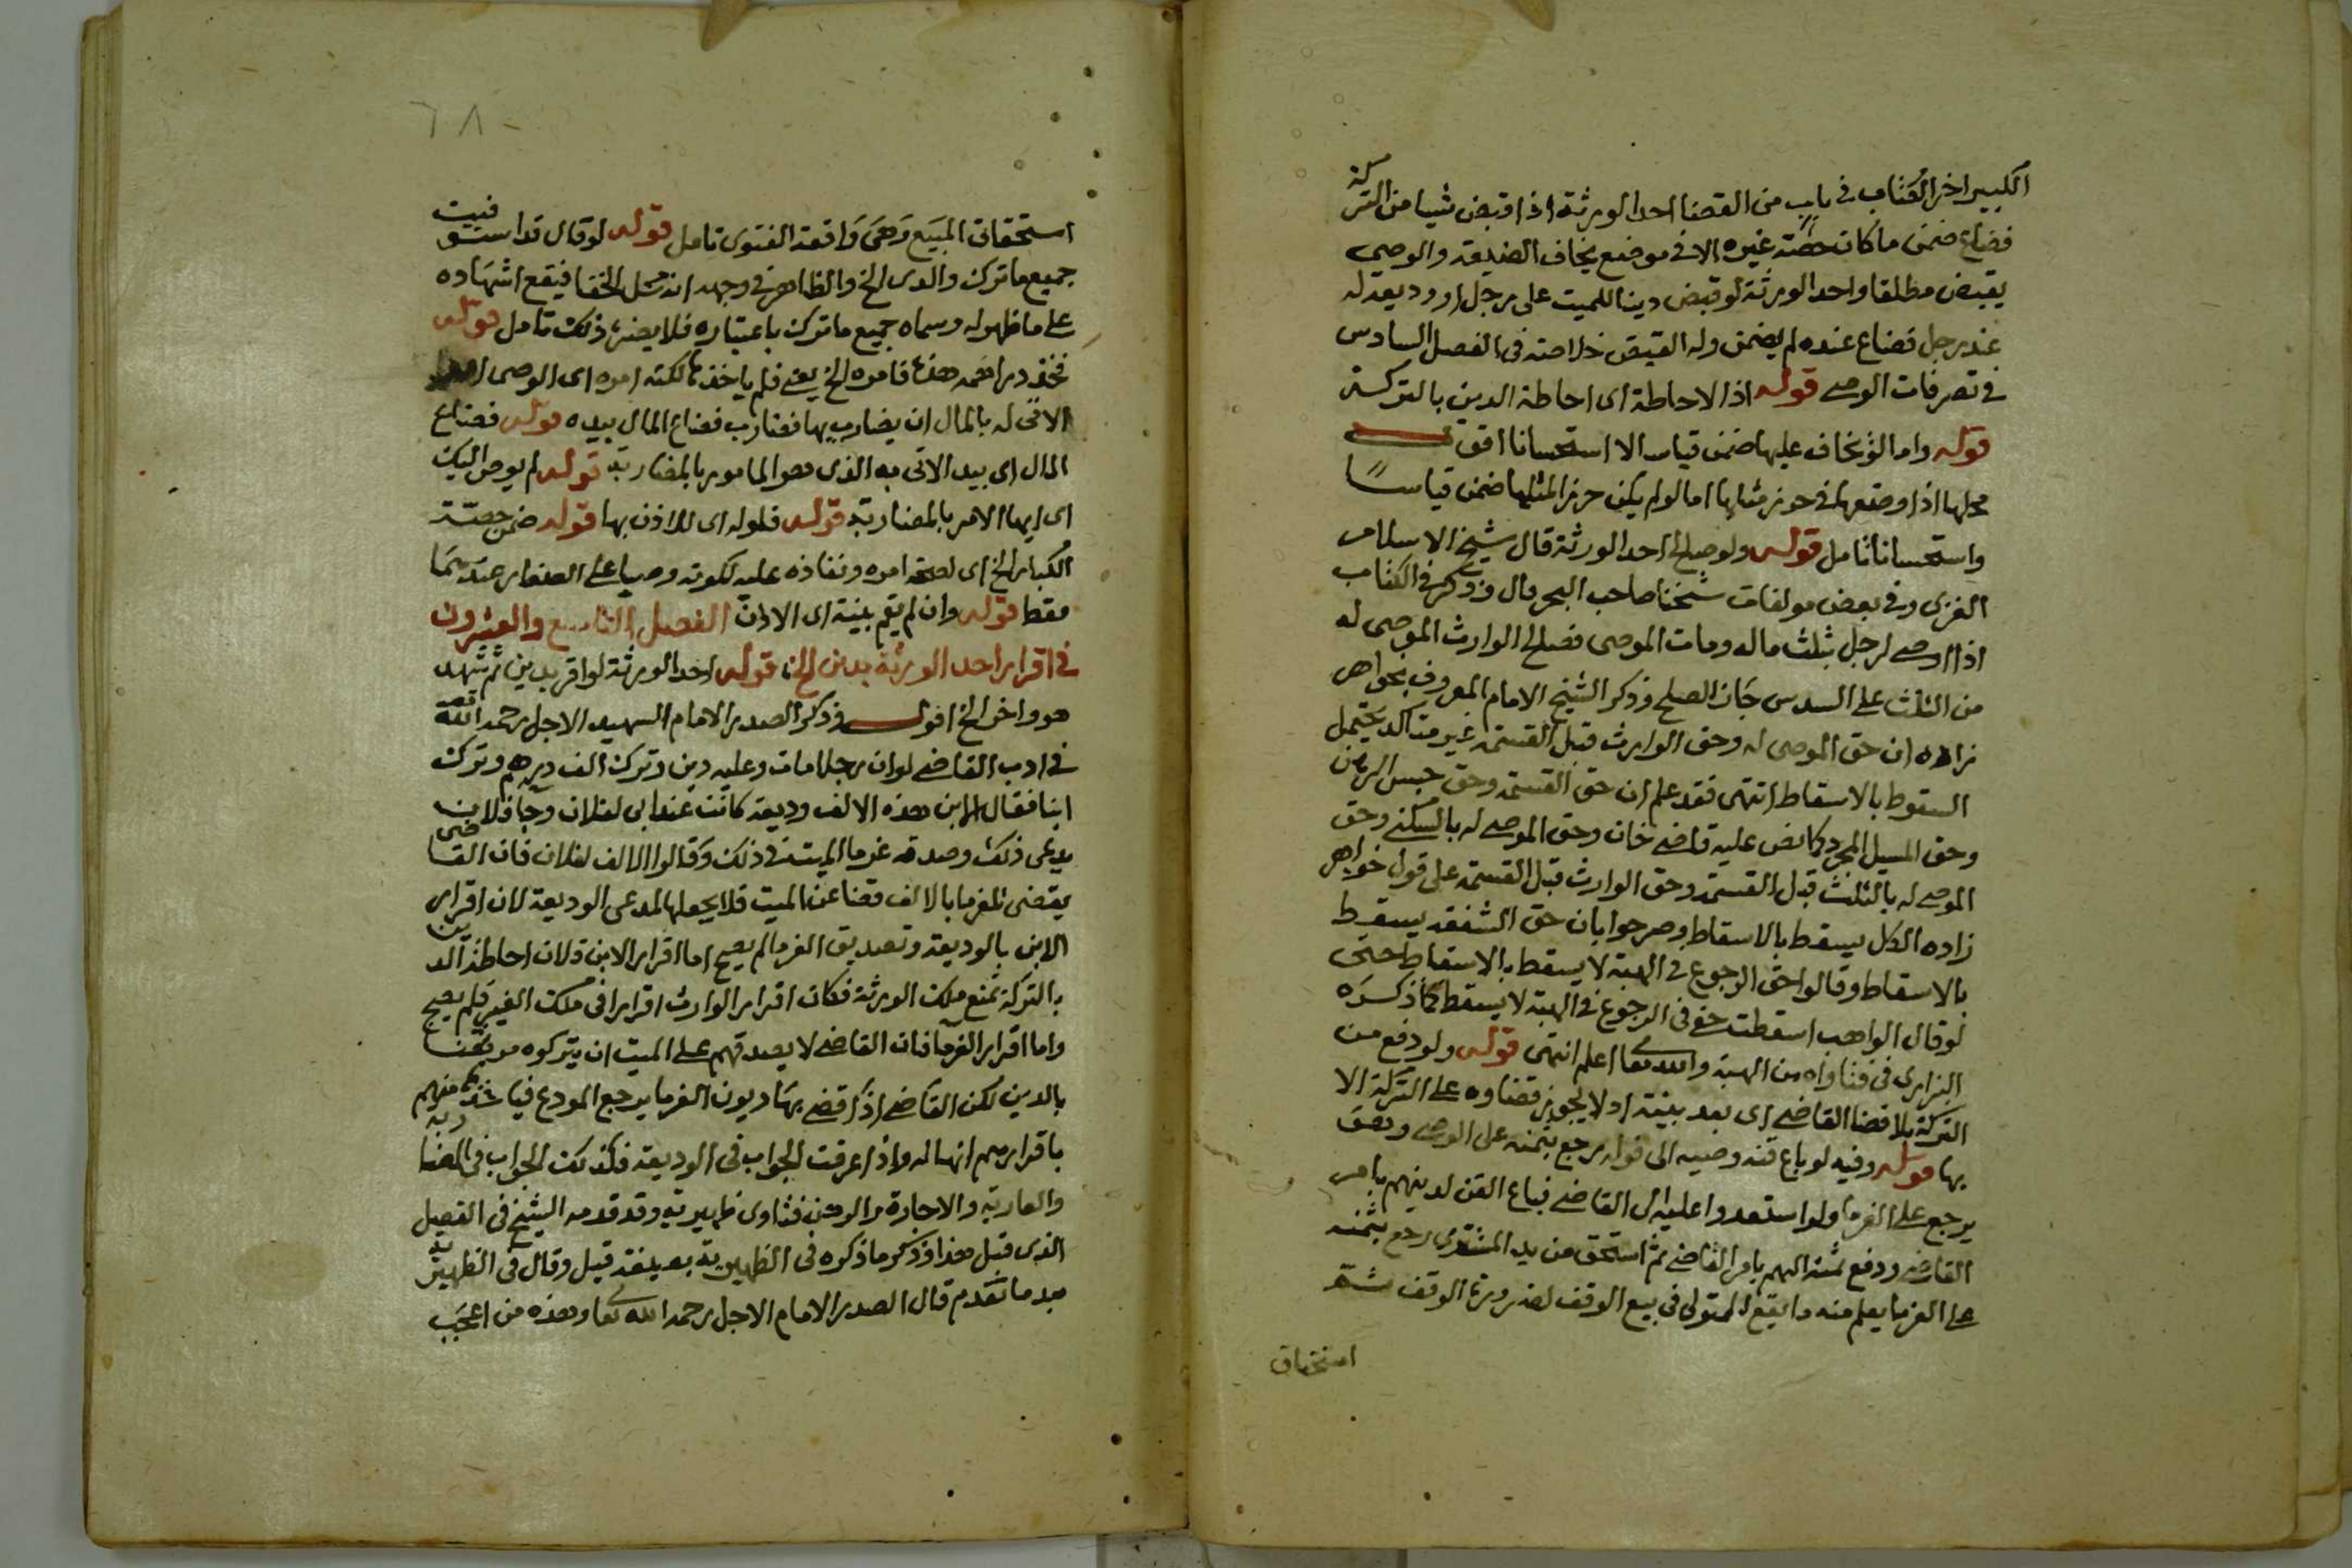 الكبير اخر الكتاب في باب من القضا احد الورثة اذا قبض شيا من التركة
فضاع ضمن ما كان حصة غيره الا في موضع يخاف الضيعة والوصي
يقبض مطلقا واحد الورثة لو قبض دينا للميت على رجل او وديعة له
عند رجل فضاع عنده لم يضمن وله القبض خلاصة في الفصل السادس
في تصرفات الوصي قوله اذ الاحاطة اى احاطة الدين بالتركة
قوله واما لو يخاف عليها ضمن قياسا لا استحسانا اقول
محلها اذا وضعها في حرز مثلها اما لو لم يكن حرز المثلها ضمن قياسا
واستحسانا تامل قوله ولو صالح احد الورثة قال شيخ الاسلام
الغزى وفي بعض مولفات شيخنا صاحب البحر قال وذكر في الكتاب
اذا اوصى لرجل بثلث ماله ومات الموصى فصالح الوارث الموصى له
من الثلث على السدس جاز الصلح وذكر الشيخ الامام المعروف بخواهر
زاده ان حق الموصى له وحق الوارث قبل القسمة غير متاكد يحتمل
السقوط بالاسقاط انتهى فقد علم ان حق القسمة وحق حبس الرهن
وحق المسيل المجرد كما نص عليه قاضي خان وحق الموصى له بالسكنى وحق
الموصى له بالثلث قبل القسمة وحق الوارث قبل القسمة على قول خواهر
زاده الكل يسقط بالاسقاط وصرحوا بان حق الشفعة يسقط
بالاسقاط وقالوا حق الرجوع في الهبة لا يسقط بالاسقاط حتى
لو قال الواهب اسقطت حقي في الرجوع في الهبة لا يسقط كما ذكره
البزازى في فتاواه من الهبة والله تعالى اعلم انتهى قوله ولو دفع من
التركة بلا قضا القاضي اى بعد بينة اذ لا يجوز قضاوه على التركة الا
بها قوله وفيه لو باع قنه وصيه الى قوله رجع بثمنه على الوصي وهو
يرجع على الغرما ولو استعدوا عليه الى القاضي فباع القن لدينهم بامر
القاضي ودفع ثمنه اليهم بامر القاضي ثم استحق من يد المشترى رجع بثمنه
على الغرما يعلم منه ما يقع للمتولى في بيع الوقف لضرورة الوقف ثم
استحقاق
استحقاق المبيع وهي واقعة الفتوى تامل قوله لو قال قد استوفيت
جميع ما ترك والدى الخ والظاهر في وجهه انه محل الخفا فيقع اشهاده
على ما ظهر له وسماه جميع ما ترك باعتباره فلا يضره ذلك تامل قوله
فخذ دراهمه هذه فامره الخ يعني فلم ياخذها لكنه امره اى الوصي
الاتى له بالمال ان يضارب بها فضارب فضاع المال بيده قوله فضاع
المال اى بيد الاتى به الذى هو المامور بالمضاربة قوله لم يوص اليك
اى ايها الامر بالمضاربة قوله فلوله اى للاذن بها قوله ضمن حصة
الكبار الخ اى لصحة امره ونفاذه عليه لكونه وصيا على الصغار
فقط قوله وان لم يقم بينة اى الاذن الفصل التاسع والعشرون
في اقرار احد الورثة بدين الخ قوله احد الورثة لو اقر بدين ثم شهد
هو واخر الخ اقول وذكر الصدر الامام الشهيد الاجل رحمه الله تعالى
في ادب القاضي لو ان رجلا مات وعليه دين وترك الف درهم وترك
ابنا فقال الابن هذه الالف وديعة كانت عند ابى لفلان وجا فلان
يدعى ذلك وصدقه غرما الميت في ذلك وقالوا الالف لفلان فان القاضي
يقضى للغرما بالالف قضا عن الميت فلا يجعلها لمدعى الوديعة لان اقرار
الابن بالوديعة وتصديق الغرما لم يصح اما اقرار الابن فلان احاطة الدين
بالتركة تمنع ملك الورثة فكان اقرار الوارث اقرارا في ملك الغير فلم يصح
واما اقرار الغرما فان القاضي لا يصدقهم على الميت ان يتركوه مرتهنا
بالدين لكن القاضي اذا قضى بها ديون الغرما يرجع المودع فياخذه منهم
باقرارهم انها له واذا عرفت الجواب في الوديعة فكذلك الجواب في المضاربة
والعارية والاجارة والرهن فتاوى ظهيرية وقد قدمه الشيخ في الفصل
الذى قبل هذا وذكر ما ذكره في الظهيرية بصيغة قيل وقال في الظهيرية
بعد ما تقدم قال الصدر الامام الاجل رحمه الله تعالى وهذه من اعجب